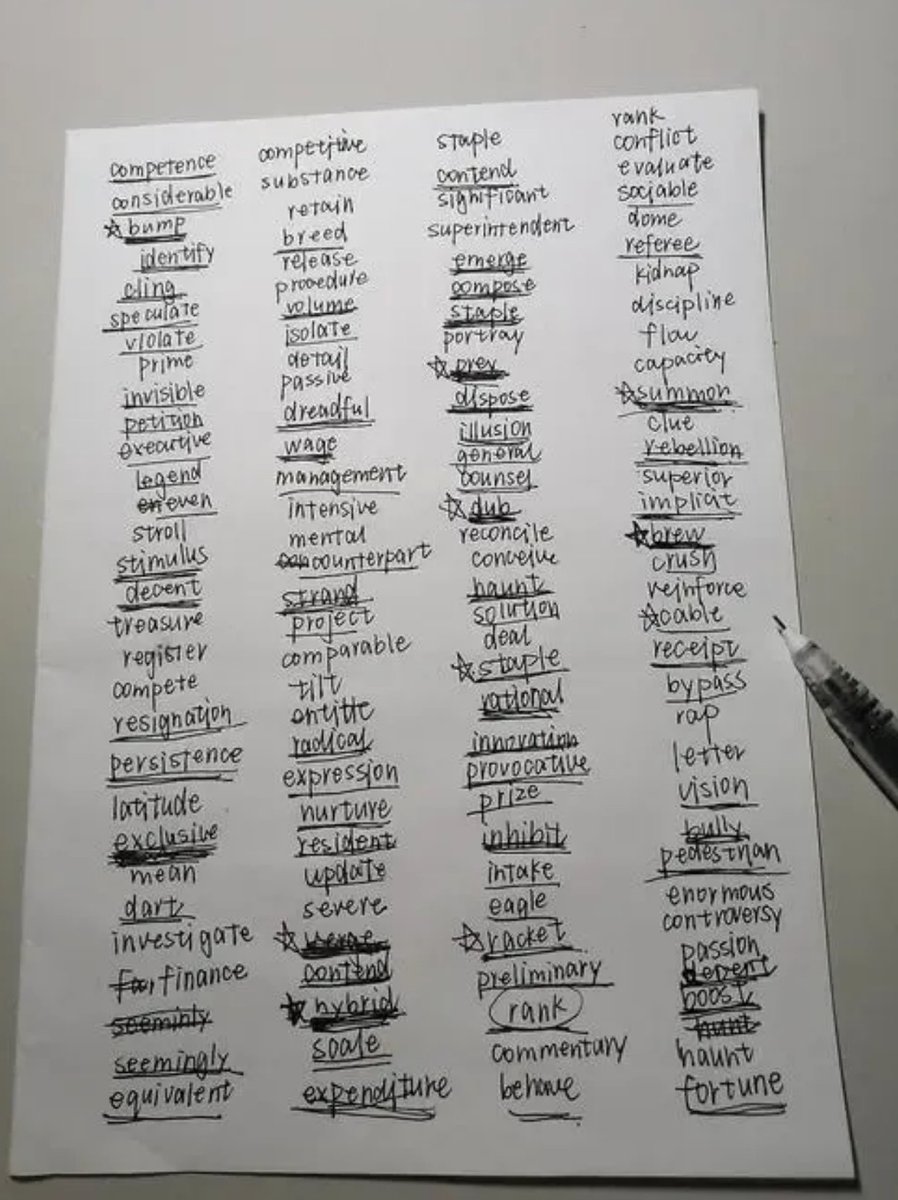 competence
considerable
bump
identify
cling
speculate
violate
prime
invisible
petition
executive
legend
even
stroll
stimulus
decent
treasure
register
compete
resignation
persistence
latitude
exclusive
mean
dart
investigate
finance
seeminly
seemingly
equivalent
competitive
substance
retain
breed
release
procedure
volume
isolate
detail
passive
dreadful
wage
management
intensive
mental
counterpart
strand
project
comparable
tilt
entitle
radical
expression
nurture
resident
update
severe
contend
hybrid
scale
expenditure
staple
contend
significant
superintendent
emerge
compose
staple
portray
prey
dispose
illusion
general
counsel
dub
reconcile
conceive
haunt
solution
deal
staple
rational
innovation
provocative
prize
inhibit
intake
eagle
racket
preliminary
rank
commentary
behave
rank
conflict
evaluate
sociable
dome
referee
kidnap
discipline
flaw
capacity
summon
clue
rebellion
superior
implicit
brew
crush
reinforce
cable
receipt
bypass
rap
letter
vision
bully
pedestrian
enormous
controversy
passion
boost
hunt
haunt
fortune